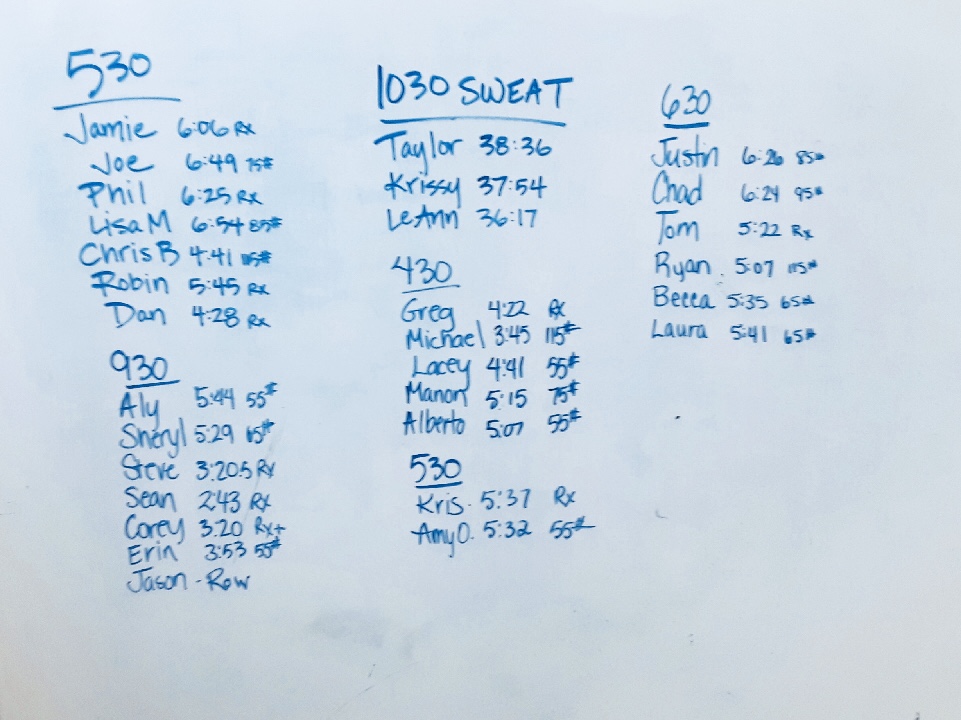 530
Jamie 6:06 Rx
Joe 6:49 75#
Phil 6:25 Rx
Lisa M 6:54 85#
Chris B 4:41 115#
Robin 5:45 Rx
Dan 4:28 Rx
930
Aly 5:44 55#
Sheryl 5:29
Steve 3:20.5 Rx
Sean 2:43 Rx
Corey 3:20 Rx+
Erin 3:53 55#
Jason - Row
1030 SWEAT
Taylor 38:36
Krissy 37:54
LeAnn 36:17
430
Greg 4:22 Rx
Michael 3:45 115#
Lacey 4:41 55#
Manon 5:15 75#
Alberto 5:07 55#
530
Kris. 5:37 Rx
Amy O. 5:32 55#
630
Justin 6:26 85#
Chad 6:24 95#
Tom 5:22 Rx
Ryan 5:07 115#
Becca 5:35 65#
Laura 5:41 65#